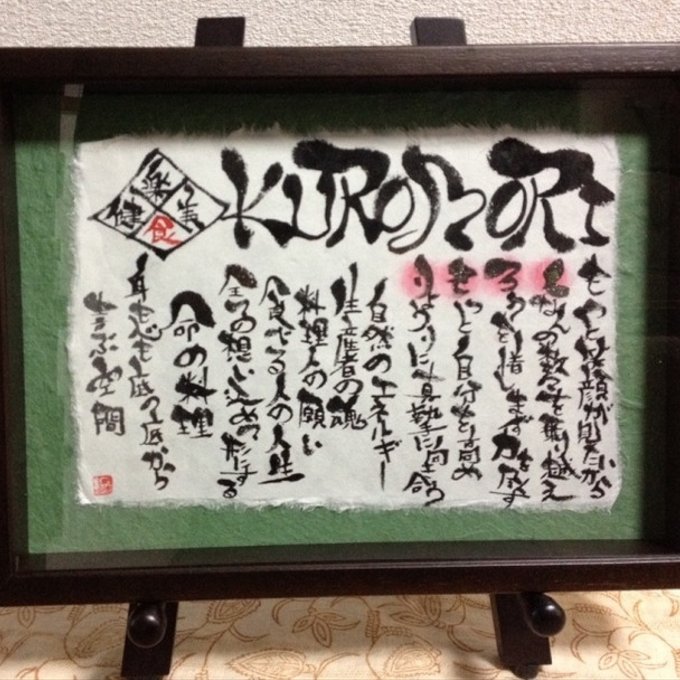 楽
健 美
食
KUROMORI
もっと笑顔が見たいから
くなんの数々を乗り越え
ろうを惜しまず力を尽す
もっと自分を高め
りょうりに真摯に向き合う
自然のエネルギー
生産者の魂
料理人の願い
食べる人の人生
全ての想い込めて形にする
命の料理
身も心も底の底から
喜ぶ空間